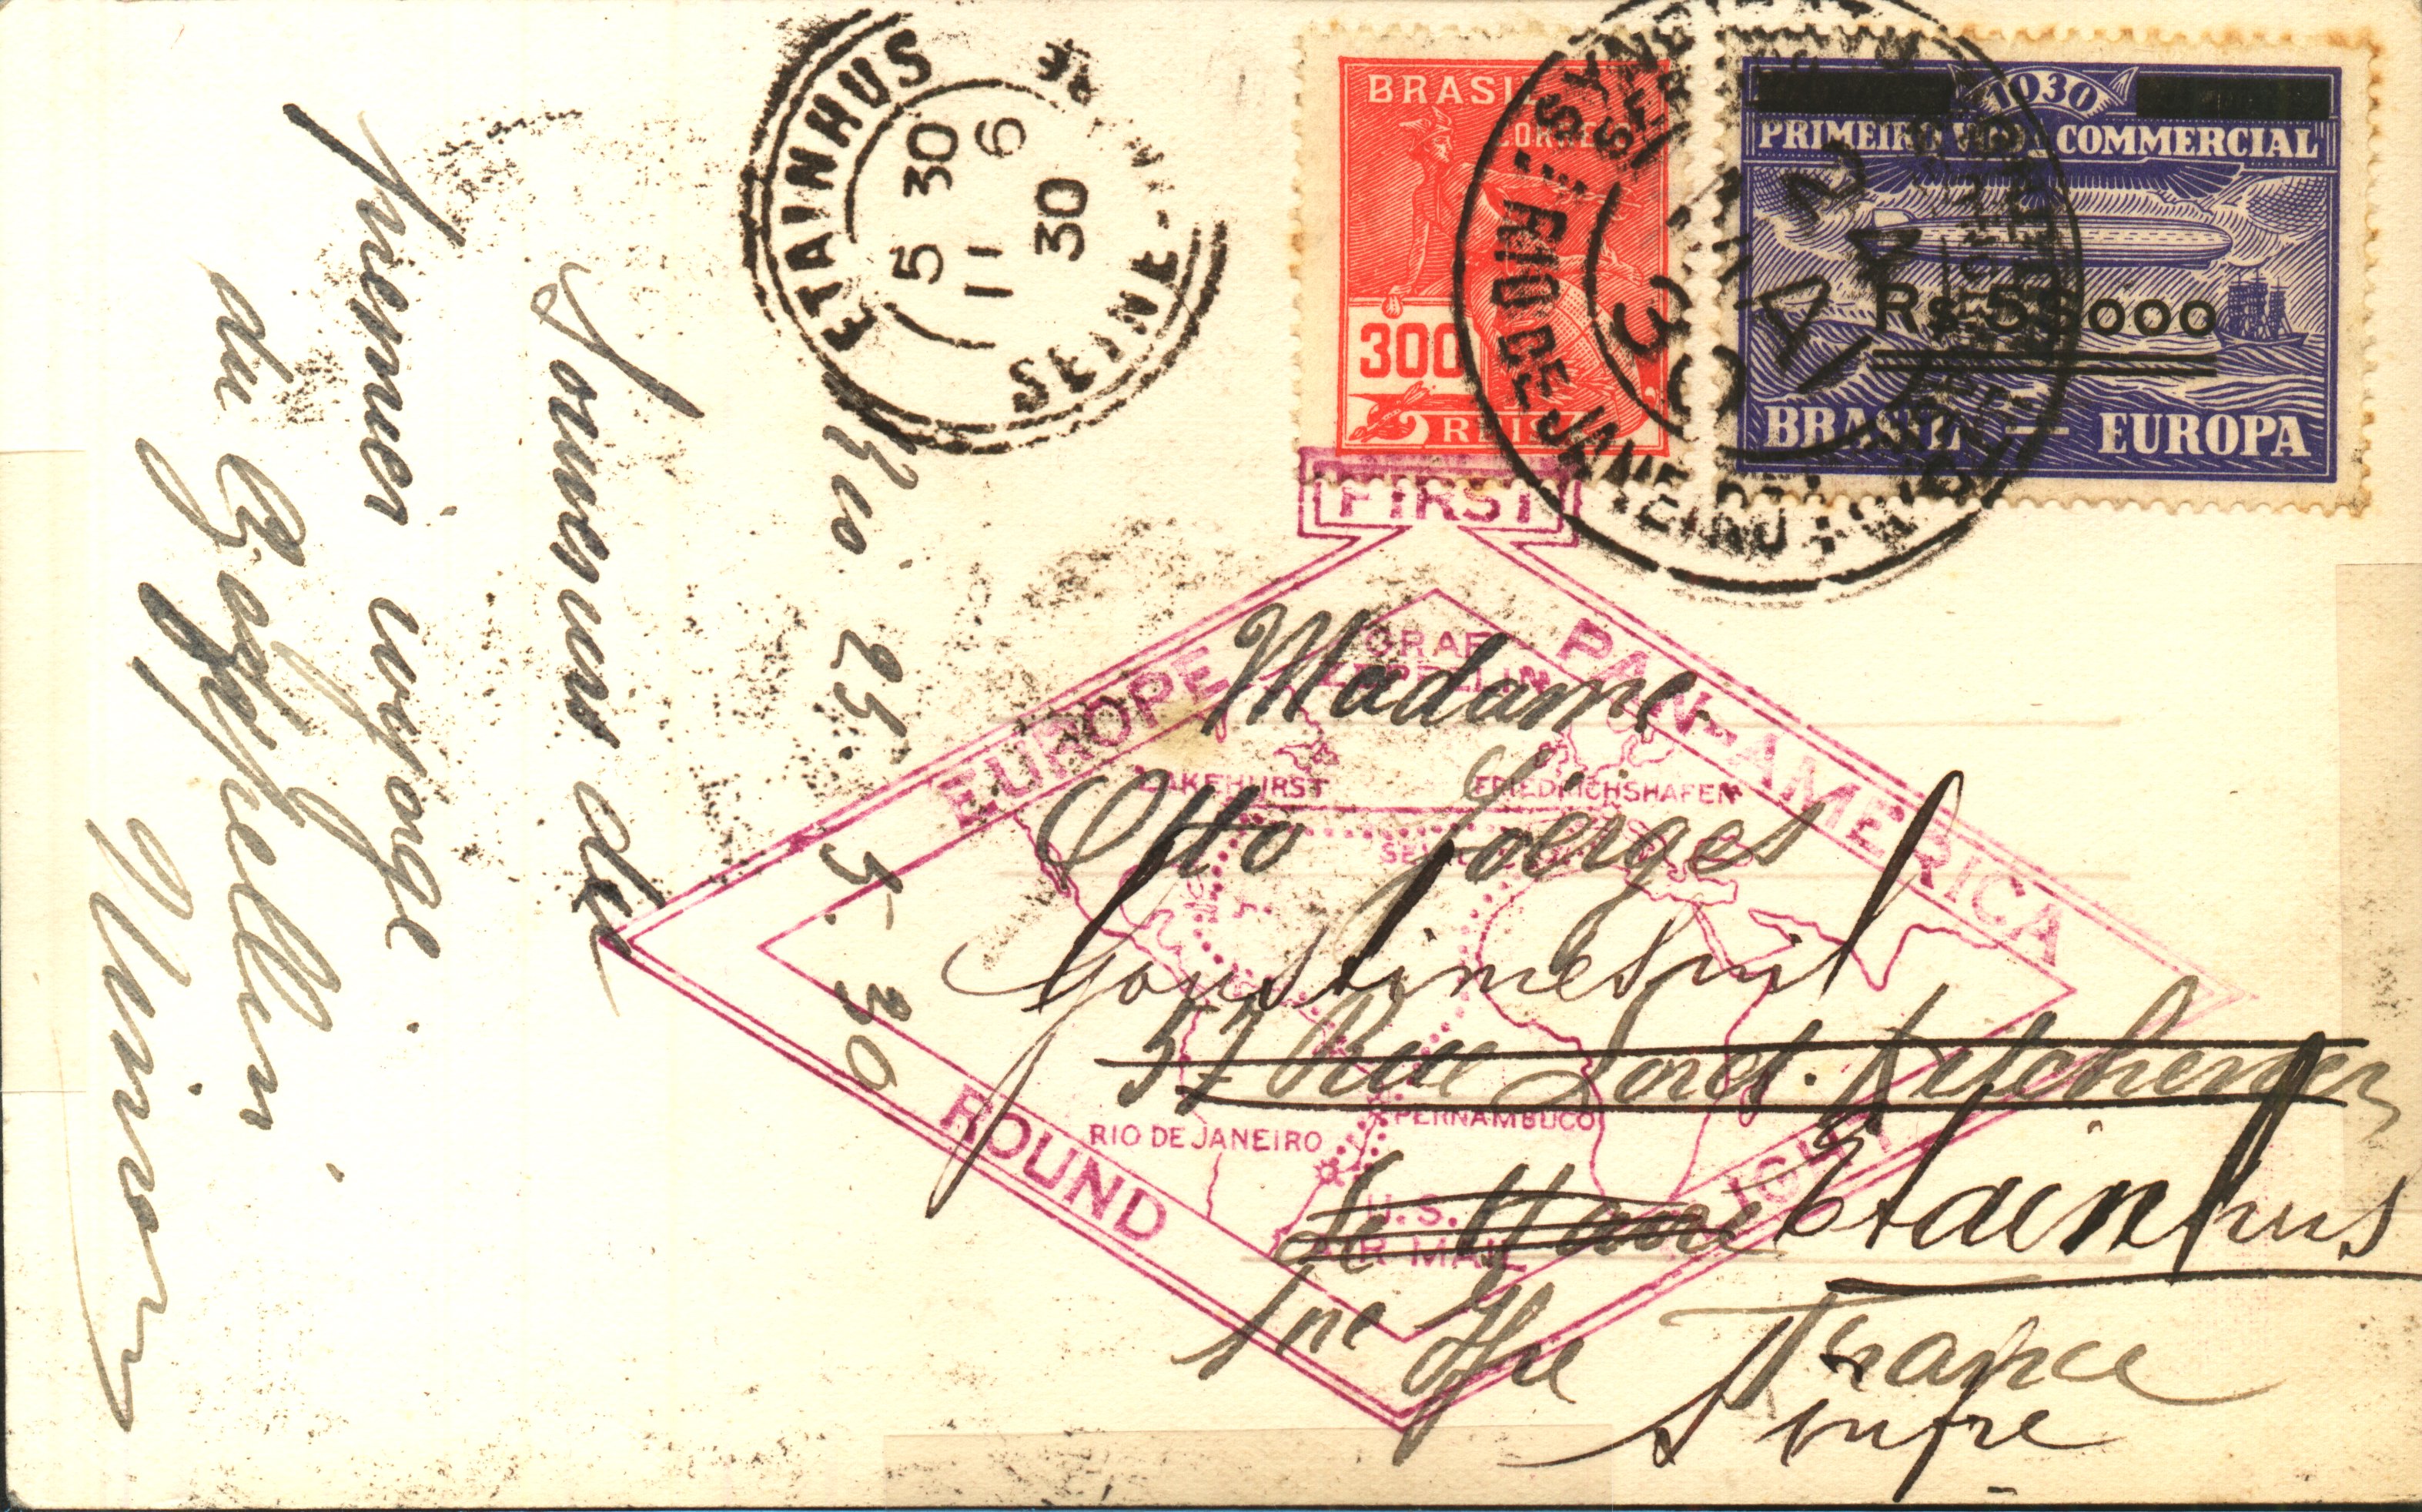 ETAINHUS
5 30
11 6
30
SEINE-
BRASIL
CORREIO
300
REIS
SYNDICATO
RIO DE JANEIRO
1930
PRIMEIRO VÔO COMMERCIAL
Rs 5$000
BRASIL — EUROPA
Rio 25. 5. 30
Souvenir des
premier voyage
du Zeppelin
FIRST
EUROPE
PAN-AMERICA
ROUND
FLIGHT
GRAF
ZEPPELIN
LAKEHURST
FRIEDRICHSHAFEN
PERNAMBUCO
RIO DE JANEIRO
U.S.
AIR MAIL
Madame
Otto Joerges
Goustimesnil
57 Rue Lord. Kitchener
Le Havre Etainhus
Sne Ifre France
S infre